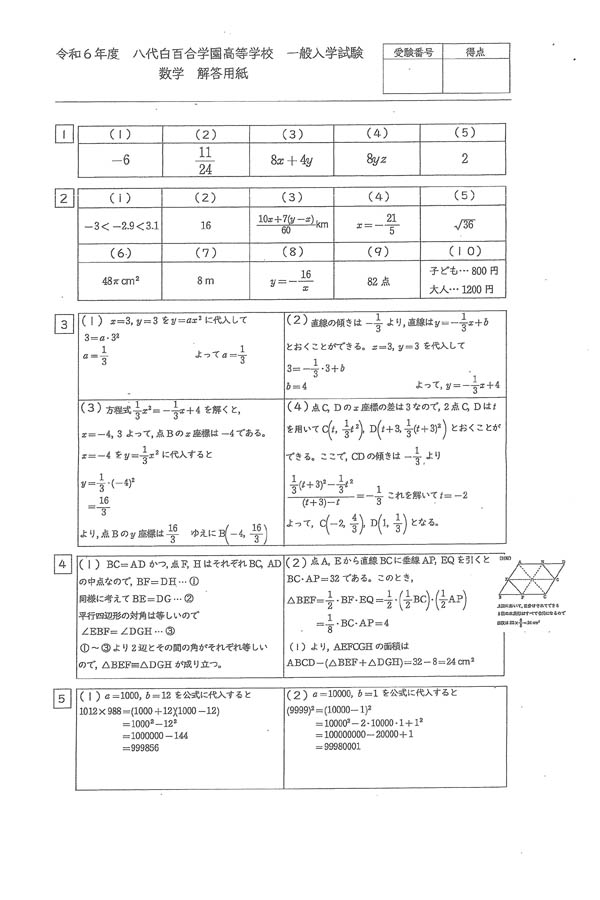 令和６年度　八代白百合学園高等学校　一般入学試験
数学　解答用紙
受験番号　得点
1
(1) (2) (3) (4) (5)
−6　11/24　8x+4y　8yz　2
2
(1) (2) (3) (4) (5)
−3＜−2.9＜3.1　16　(10x+7(y−x))/60 km　x=−21/5　√36
(6) (7) (8) (9) (10)
48π cm²　8 m　y=−16/x　82 点　子ども… 800 円
大人… 1200 円
3
(1) x=3, y=3 を y=ax² に代入して
3=a·3²
a=1/3　よって a=1/3
(2) 直線の傾きは −1/3 より, 直線は y=−1/3x+b
とおくことができる。x=3, y=3 を代入して
3=−1/3·3+b
b=4　よって, y=−1/3x+4
(3) 方程式 1/3x²=−1/3x+4 を解くと,
x=−4, 3 よって, 点 B の x 座標は −4 である。
x=−4 を y=1/3x² に代入すると
y=1/3·(−4)²
=16/3
より, 点 B の y 座標は 16/3　ゆえに B(−4, 16/3)
(4) 点 C, D の x 座標の差は 3 なので, 2 点 C, D は t
を用いて C(t, 1/3t²), D(t+3, 1/3(t+3)²) とおくことが
できる。ここで, CD の傾きは −1/3 より
(1/3(t+3)²−1/3t²)/((t+3)−t)=−1/3 これを解いて t=−2
よって, C(−2, 4/3), D(1, 1/3) となる。
4
(1) BC=AD かつ, 点 F, H はそれぞれ BC, AD
の中点なので, BF=DH … ①
同様に考えて BE=DG … ②
平行四辺形の対角は等しいので
∠EBF=∠DGH … ③
①～③より 2 辺とその間の角がそれぞれ等しい
ので, △BEF≡△DGH が成り立つ。
(2) 点 A, E から直線 BC に垂線 AP, EQ を引くと
BC·AP=32 である。このとき,
△BEF=1/2·BF·EQ=1/2·(1/2BC)·(1/2AP)
=1/8·BC·AP=4
(1) より, AEFCGH の面積は
ABCD−(△BEF+△DGH)=32−8=24 cm²
5
(1) a=1000, b=12 を公式に代入すると
1012×988=(1000+12)(1000−12)
=1000²−12²
=1000000−144
=999856
(2) a=10000, b=1 を公式に代入すると
(9999)²=(10000−1)²
=10000²−2·10000·1+1²
=100000000−20000+1
=99980001